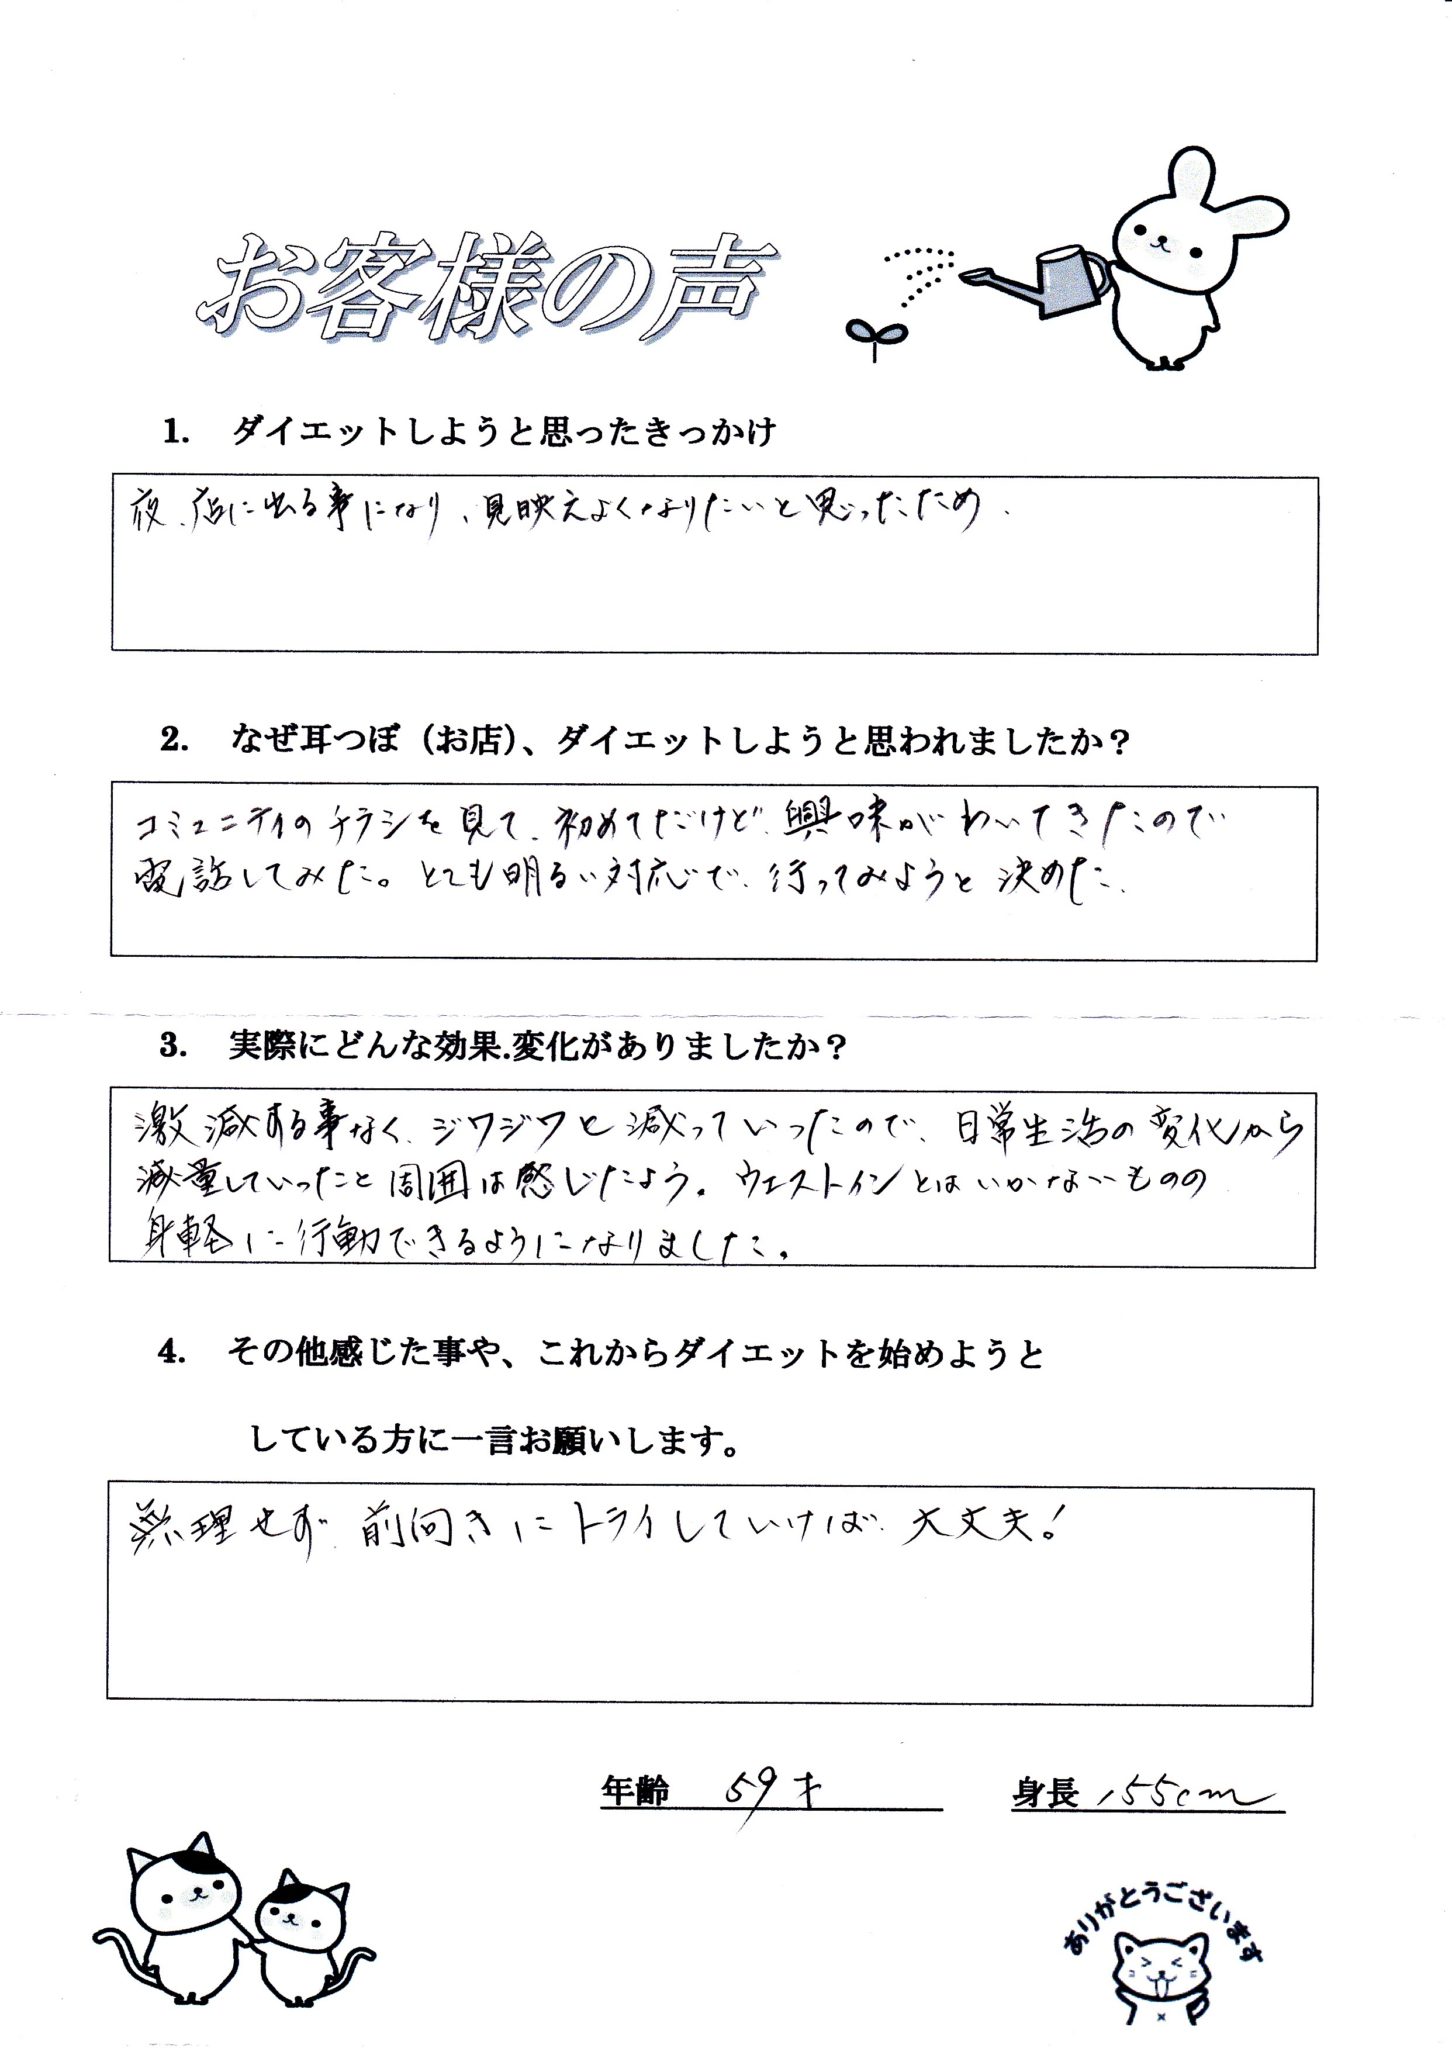 お客様の声
1. ダイエットしようと思ったきっかけ
夜、店に出る事になり、見映えよくなりたいと思ったため.
2. なぜ耳つぼ（お店）、ダイエットしようと思われましたか？
コミュニティのチラシを見て、初めてだけど、興味がわいてきたので
電話してみた。とても明るい対応で、行ってみようと決めた.
3. 実際にどんな効果.変化がありましたか？
激減する事なく、ジワジワと減っていったので、日常生活の変化から
減量していったこと周囲は感じたよう。ウエストインとはいかないものの
身軽に行動できるようになりました。
4. その他感じた事や、これからダイエットを始めようと
している方に一言お願いします。
無理せず、前向きにトライしていけば、大丈夫！
年齢 59才 身長 155cm
ありがとうございます